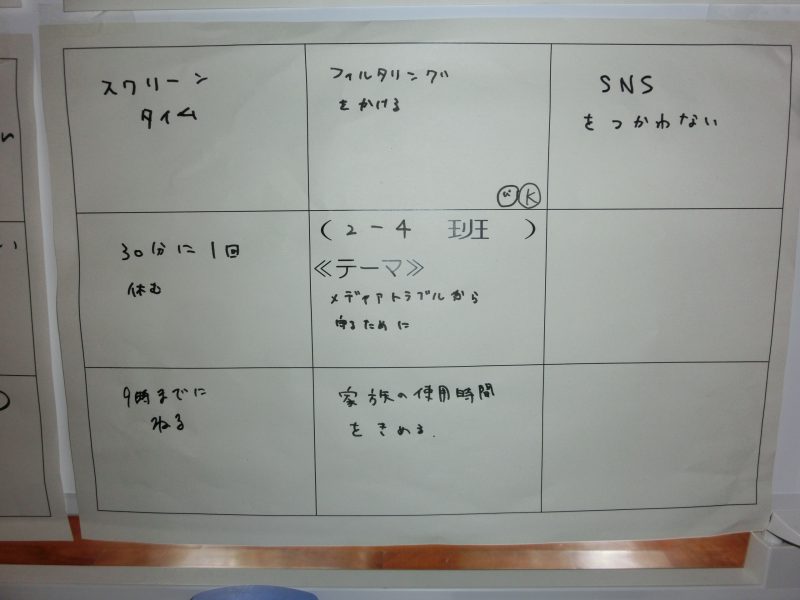 スクリーン
タイム
フィルタリング
をかける
SNS
をつかわない
K
30分に1回
休む
(2-4 班)
≪テーマ≫
メディアトラブルから
守るために
9時までに
ねる
家族の使用時間
をきめる.